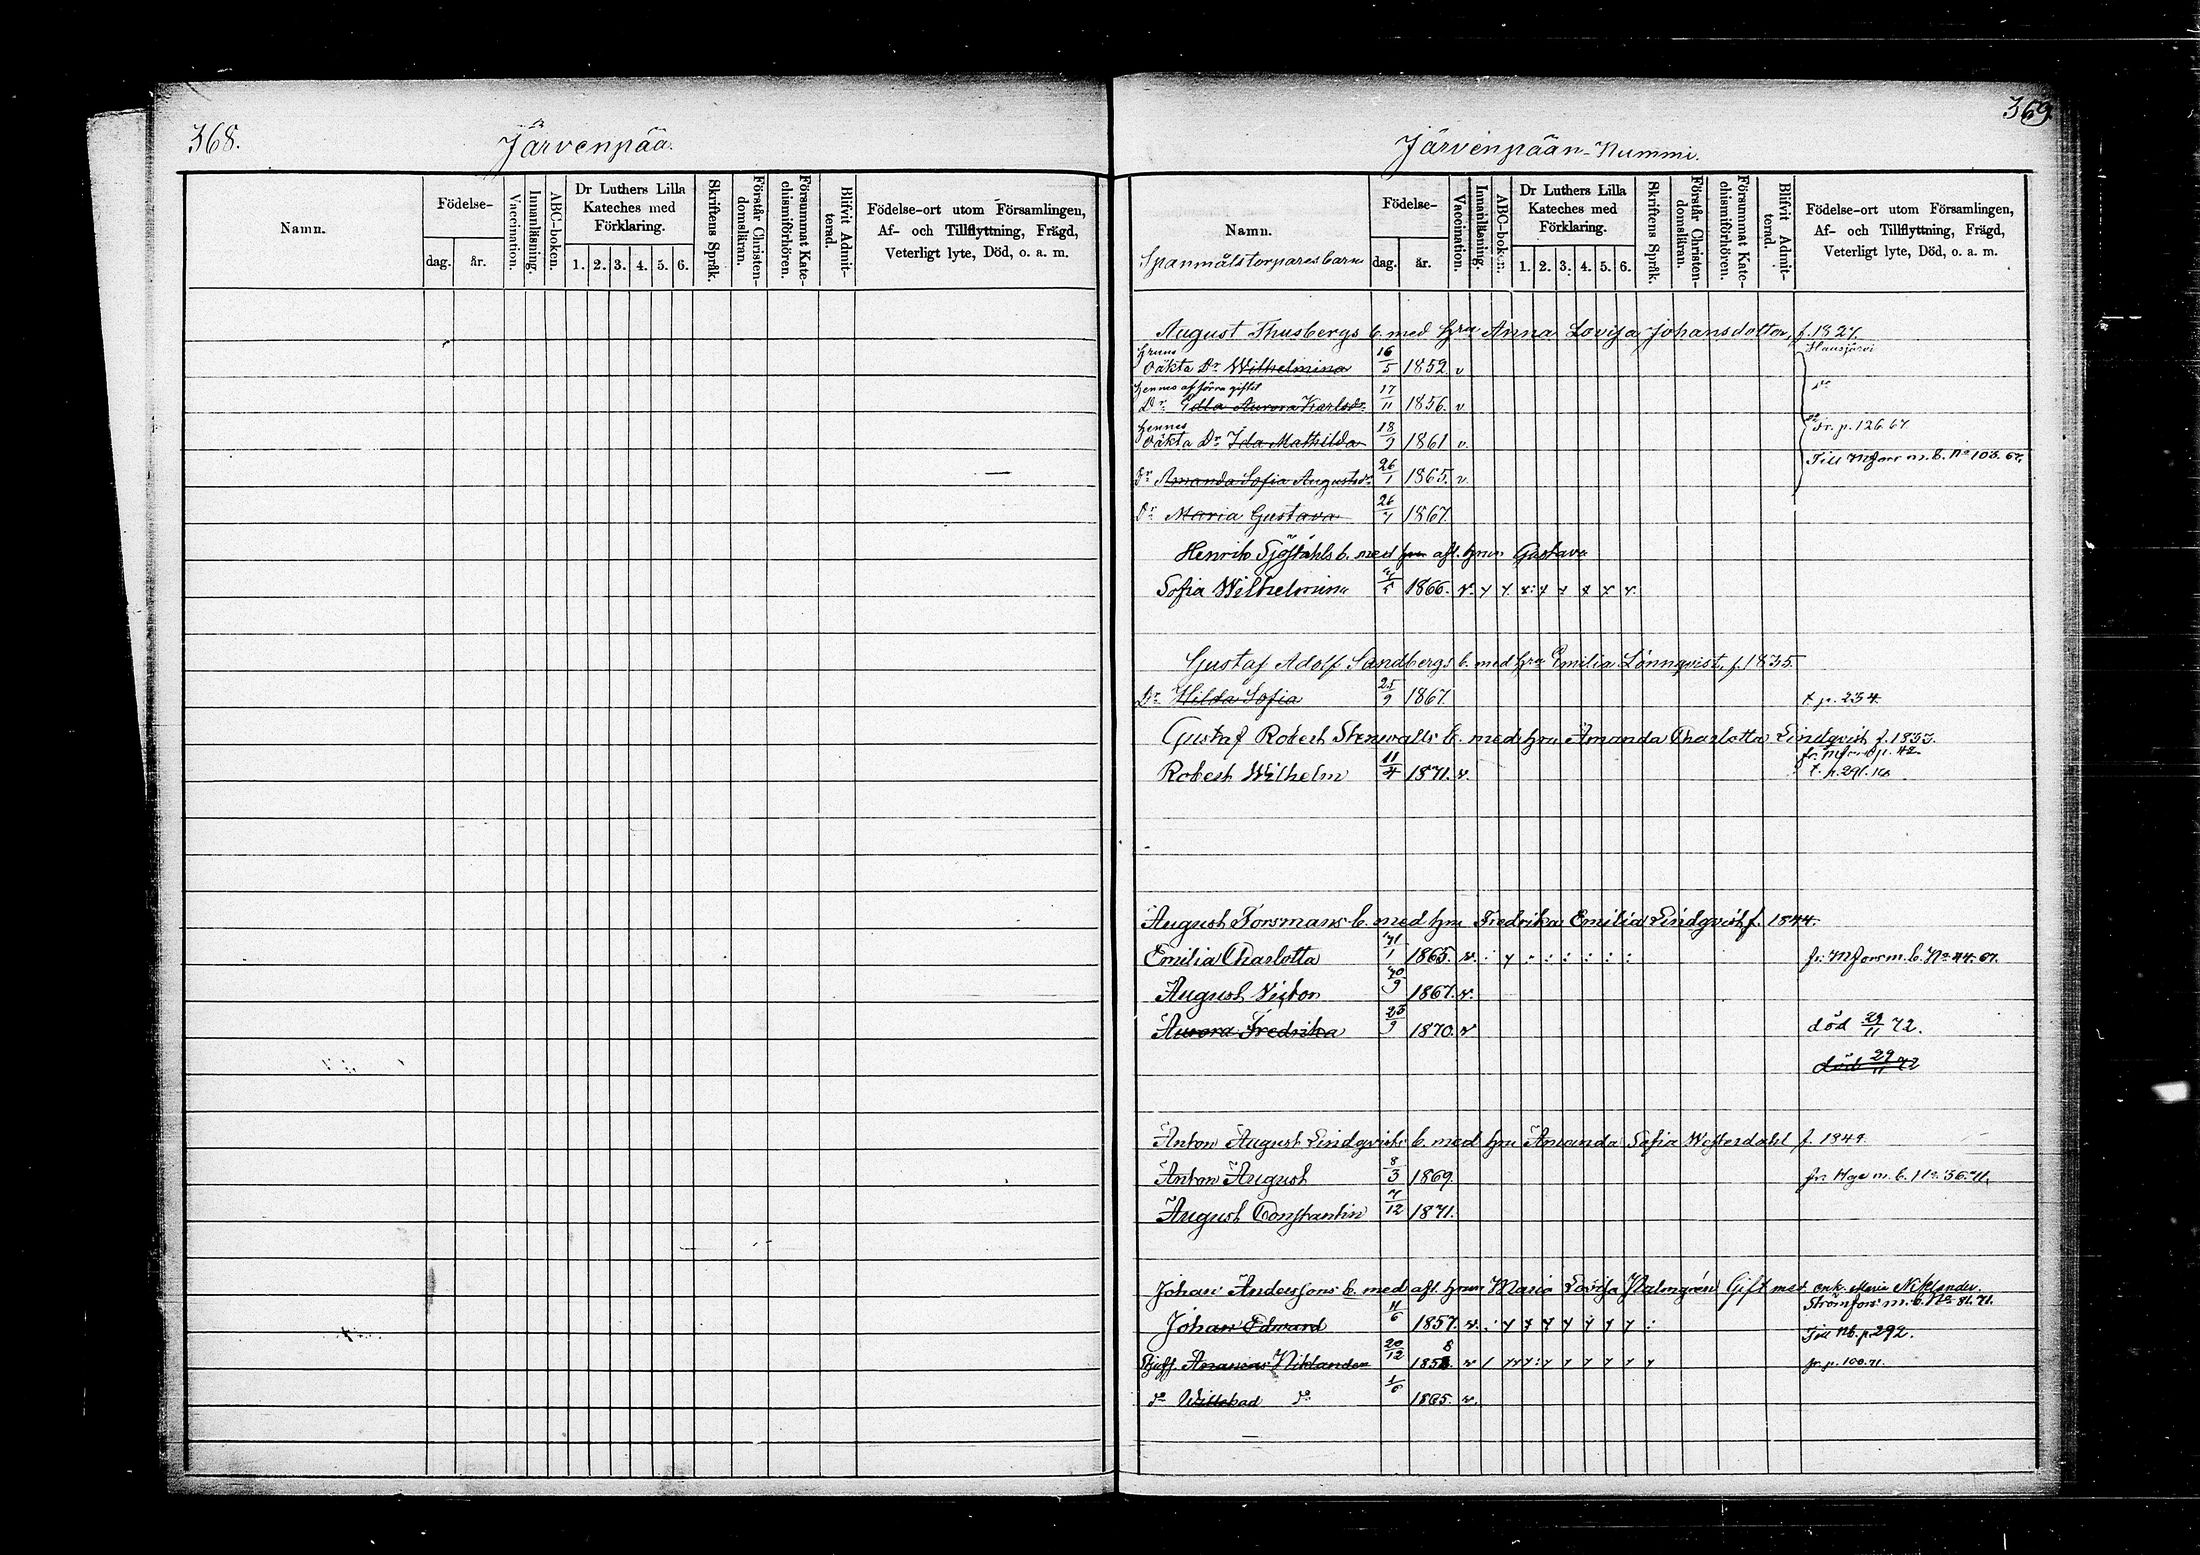 368.
Järvenpää.
Namn.
Födelse-
dag.
år.
Vaccination.
Innanläsning.
ABC-boken.
Dr Luthers Lilla
Kateches med
Förklaring.
1. 2. 3. 4. 5. 6.
Skriftens Språk.
Förstår Christen-
domsläran.
Försummat Kate-
chismiförhören.
Blifvit Admit-
terad.
Födelse-ort utom Församlingen,
Af- och Tillflyttning, Frägd,
Veterligt lyte, Död, o. a. m.
369.
Järvenpään-Nummi.
Namn.
Spanmålstorpares barn
Födelse-
dag.
år.
Vaccination.
Innanläsning.
ABC-boken.
Dr Luthers Lilla
Kateches med
Förklaring.
1. 2. 3. 4. 5. 6.
Skriftens Språk.
Förstår Christen-
domsläran.
Försummat Kate-
chismiförhören.
Blifvit Admit-
terad.
Födelse-ort utom Församlingen,
Af- och Tillflyttning, Frägd,
Veterligt lyte, Död, o. a. m.
August Thusbergs b. med hru Anna Lovisa Johansdotter, f. 1827.
Hausjärvi
hruns
oäkta Dr Wilhelmina 16/5 1852 v
hennes af förra giftet
Dr Edla Aurora Karlsdr 17/11 1856. v
hennes
oäkta Dr Ida Mathilda 18/9 1861 v. fr. p. 126. 67.
Dr Amanda Sofia Augustsdr 26/1 1865. v. Till Mfors m. b. No 103. 67.
Dr Maria Gustava 26/7 1867.
Henrik Sjöståhls b. med hru afl. hrun Gustava
Sofia Wilhelmina 1866. v.
Gustaf Adolf Sandbergs b. med hru Emilia Lönnqvist, f. 1835.
Dr Hilda Sofia 25/9 1867. t. p. 234.
Gustaf Robert Stenwalls b. med hru Amanda Charlotta Lindqvist f. 1833.
Robert Wilhelm 11/4 1871. v. t. p. 291.
August Forsmans b. med hru Fredrika Emilia Lindqvist f. 1844.
Emilia Charlotta 1865. v. fr. Mfors m. b. No 44. 67.
August Victor 1867. v.
Aurora Fredrika 23/9 1870. v död 29/11 72.
död 29/11 72
Anton August Lindqvists b. med hru Amanda Sofia Westerdahl f. 1849.
Anton August 8/3 1869. m. b. No 36. 71.
August Constantin 7/12 1871.
Johan Anderssons b. med afl. hrun Maria Lovisa Malmgrén Gift med enk. Maria Niklander.
Strömfors m. b. No 81. 71.
Johan Edward 1857. v. Till Nb. p. 292.
Styfs. Ananias Niklander 20/12 1858. v fr. p. 100. 71.
do Willehad do 1/6 1865. v.